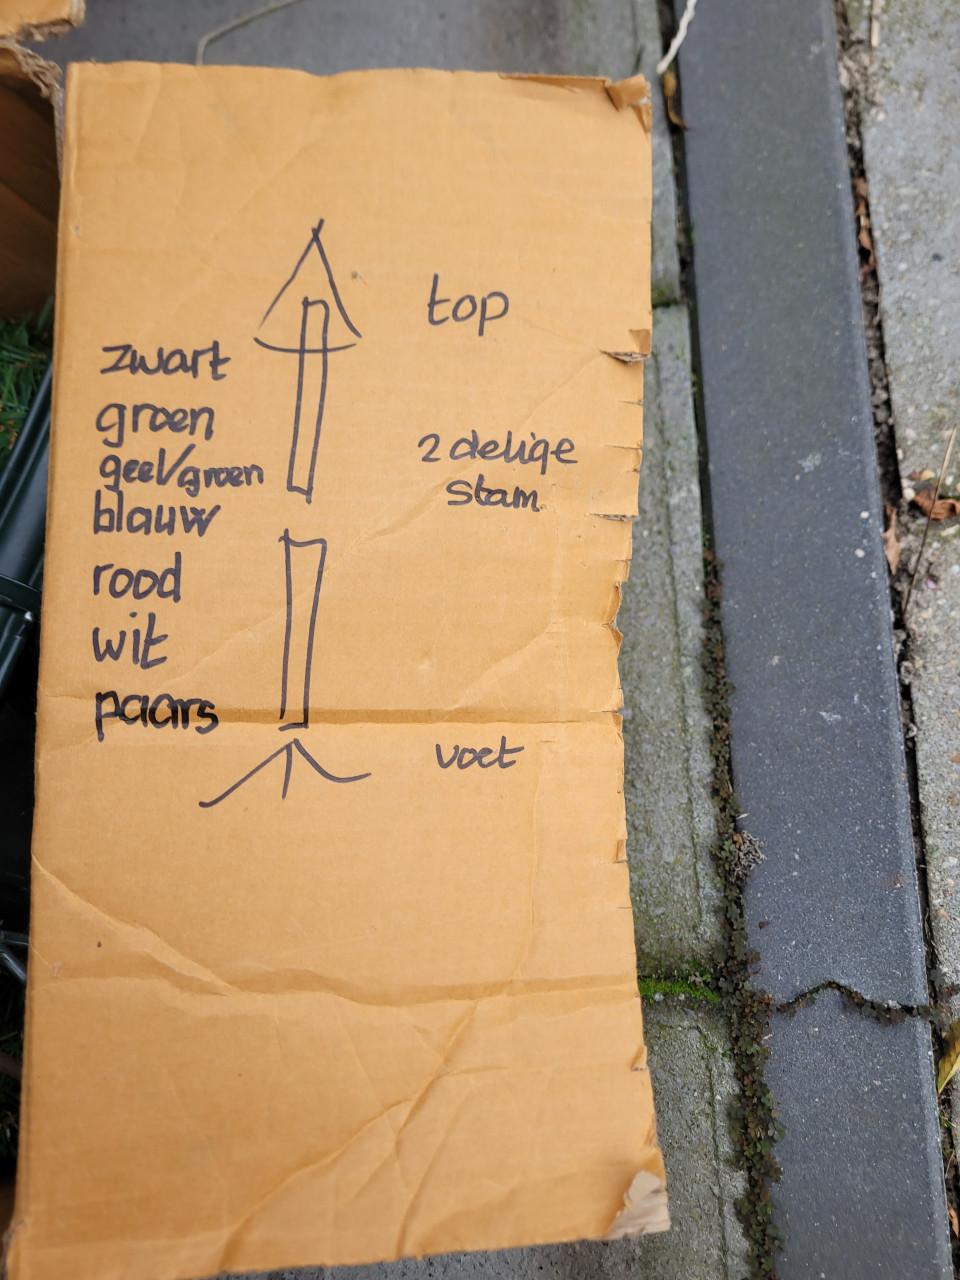 top
zwart
groen
geel/groen
2 delige
stam
blauw
rood
wit
paars
voet